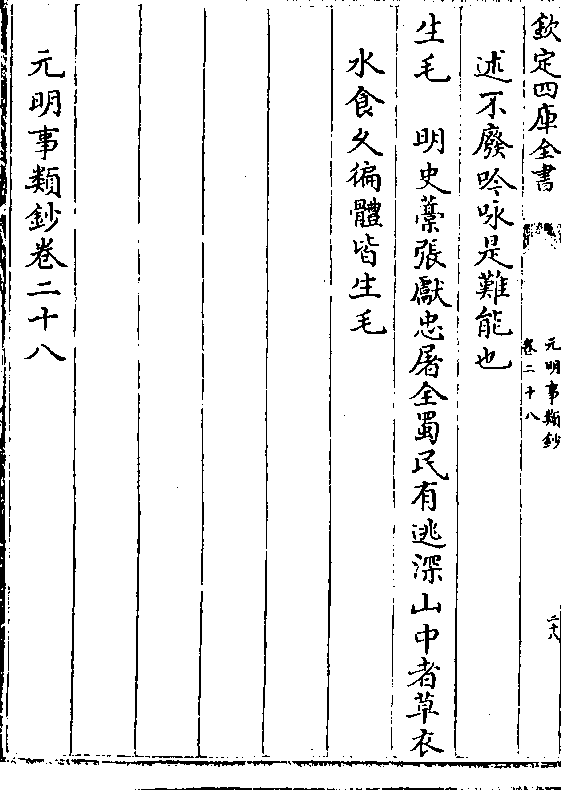 欽定四庫全書
元明事類鈔
卷二十八
二十八
述不廢吟咏是難能也
生毛　明史藳張獻忠屠全蜀民有逃深山中者草衣
水食久徧體皆生毛
元明事類鈔卷二十八